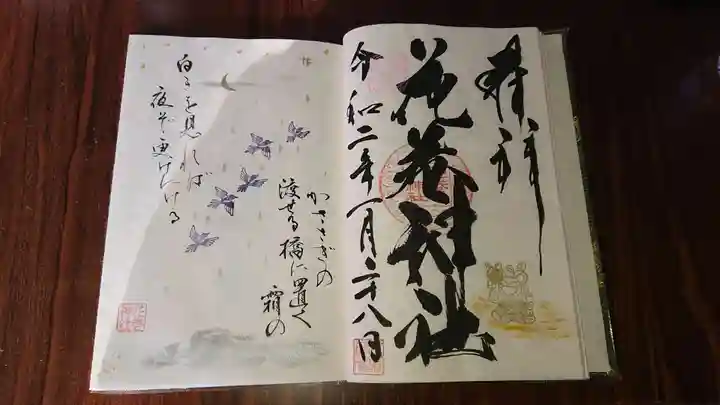 奉拝
花巻神社
令和二年一月二十八日
かささぎの
渡せる橋に置く
霜の
白きを見れば
夜ぞ更けにける